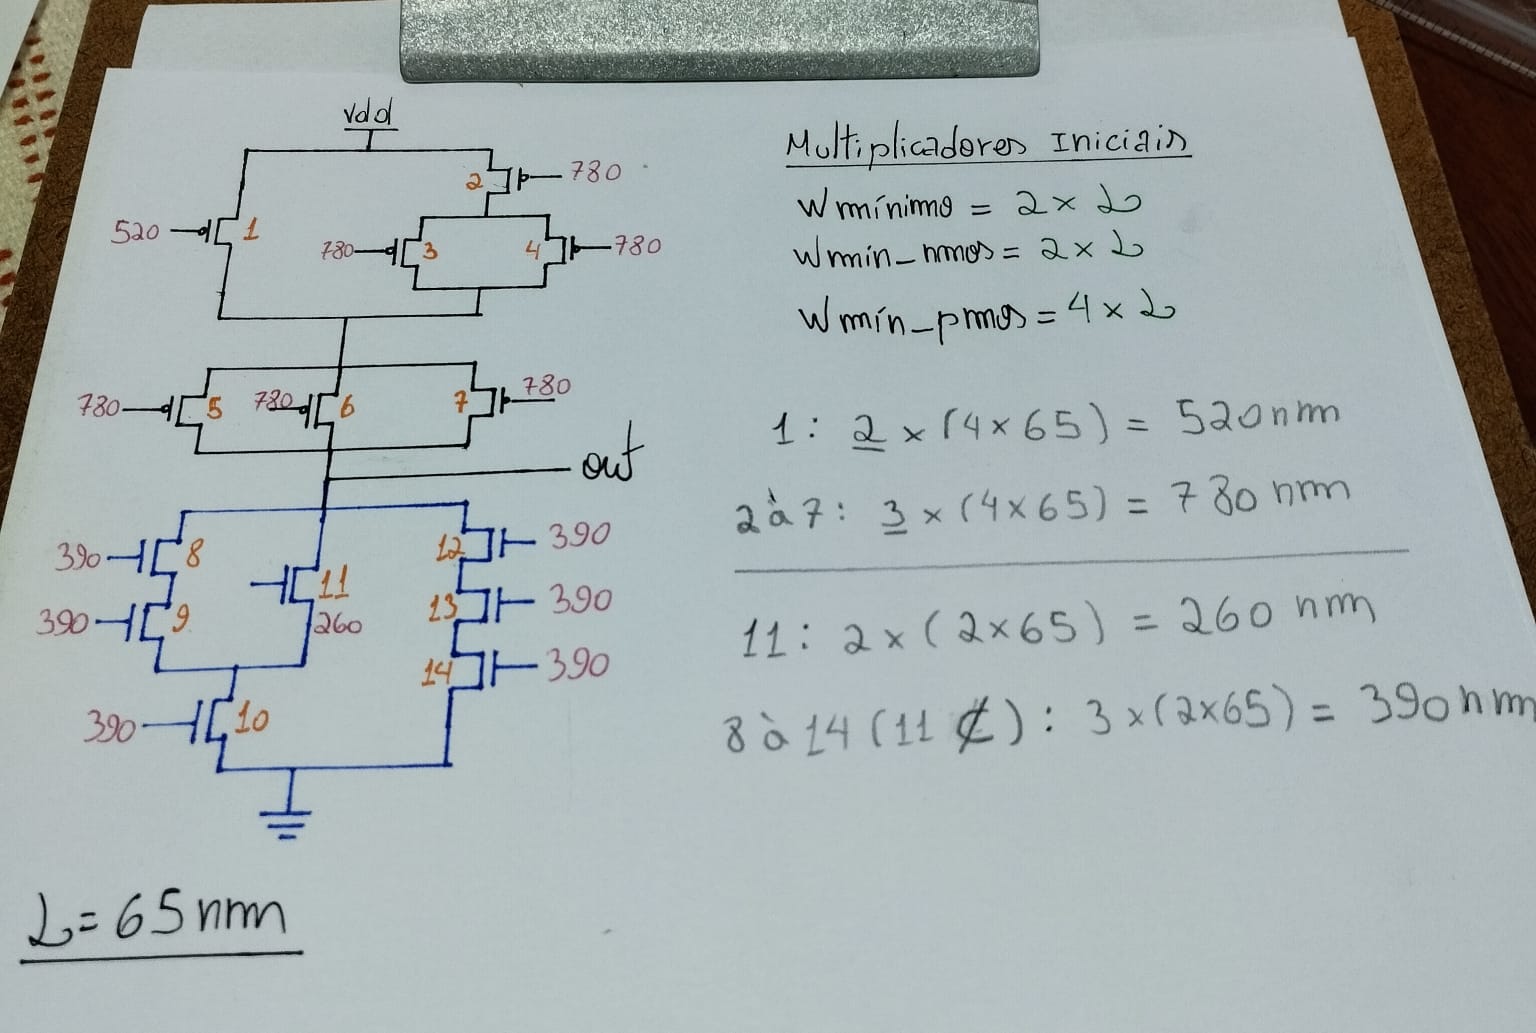 vdd
2 780
520 1
780 3 4 780
780 5 780 6 7 780
out
390 8 12 390
11
390 9 260 13 390
14 390
390 10
L = 65 nm
Multiplicadores Iniciais
Wmínimo = 2 x L
Wmin_nmos = 2 x L
Wmín_pmos = 4 x L
1: 2 x (4 x 65) = 520 nm
2 à 7: 3 x (4 x 65) = 780 nm
11: 2 x (2 x 65) = 260 nm
8 à 14 (11 ⊄): 3 x (2x65) = 390 nm